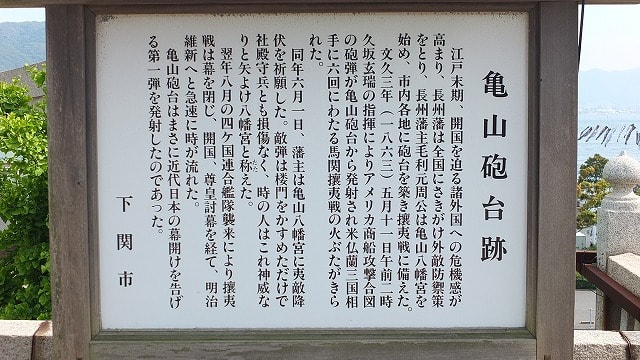 亀山砲台跡
江戸末期、開国を迫る諸外国への危機感が
高まり、長州藩は全国にさきがけ外敵防禦策
をとり、長州藩主毛利元周公は亀山八幡宮を
始め、市内各地に砲台を築き攘夷戦に備えた。
文久三年(一八六三)五月十一日午前二時
久坂玄瑞の指揮によりアメリカ商船攻撃合図
の砲弾が亀山砲台から発射され米仏蘭三国相
手に六回にわたる馬関攘夷戦の火ぶたがきら
れた。
同年六月一日、藩主は亀山八幡宮に夷敵降
伏を祈願した。敵弾は楼門をかすめただけで
社殿守兵とも損傷なく、時の人はこれ神威な
りと矢よけ八幡宮と称えた。
翌年八月の四ケ国連合艦隊襲来により攘夷
戦は幕を閉じ、開国、尊皇討幕を経て、明治
維新へと急速に時が流れた。
亀山砲台はまさに近代日本の幕開けを告げ
る第一弾を発射したのであった。
下関市